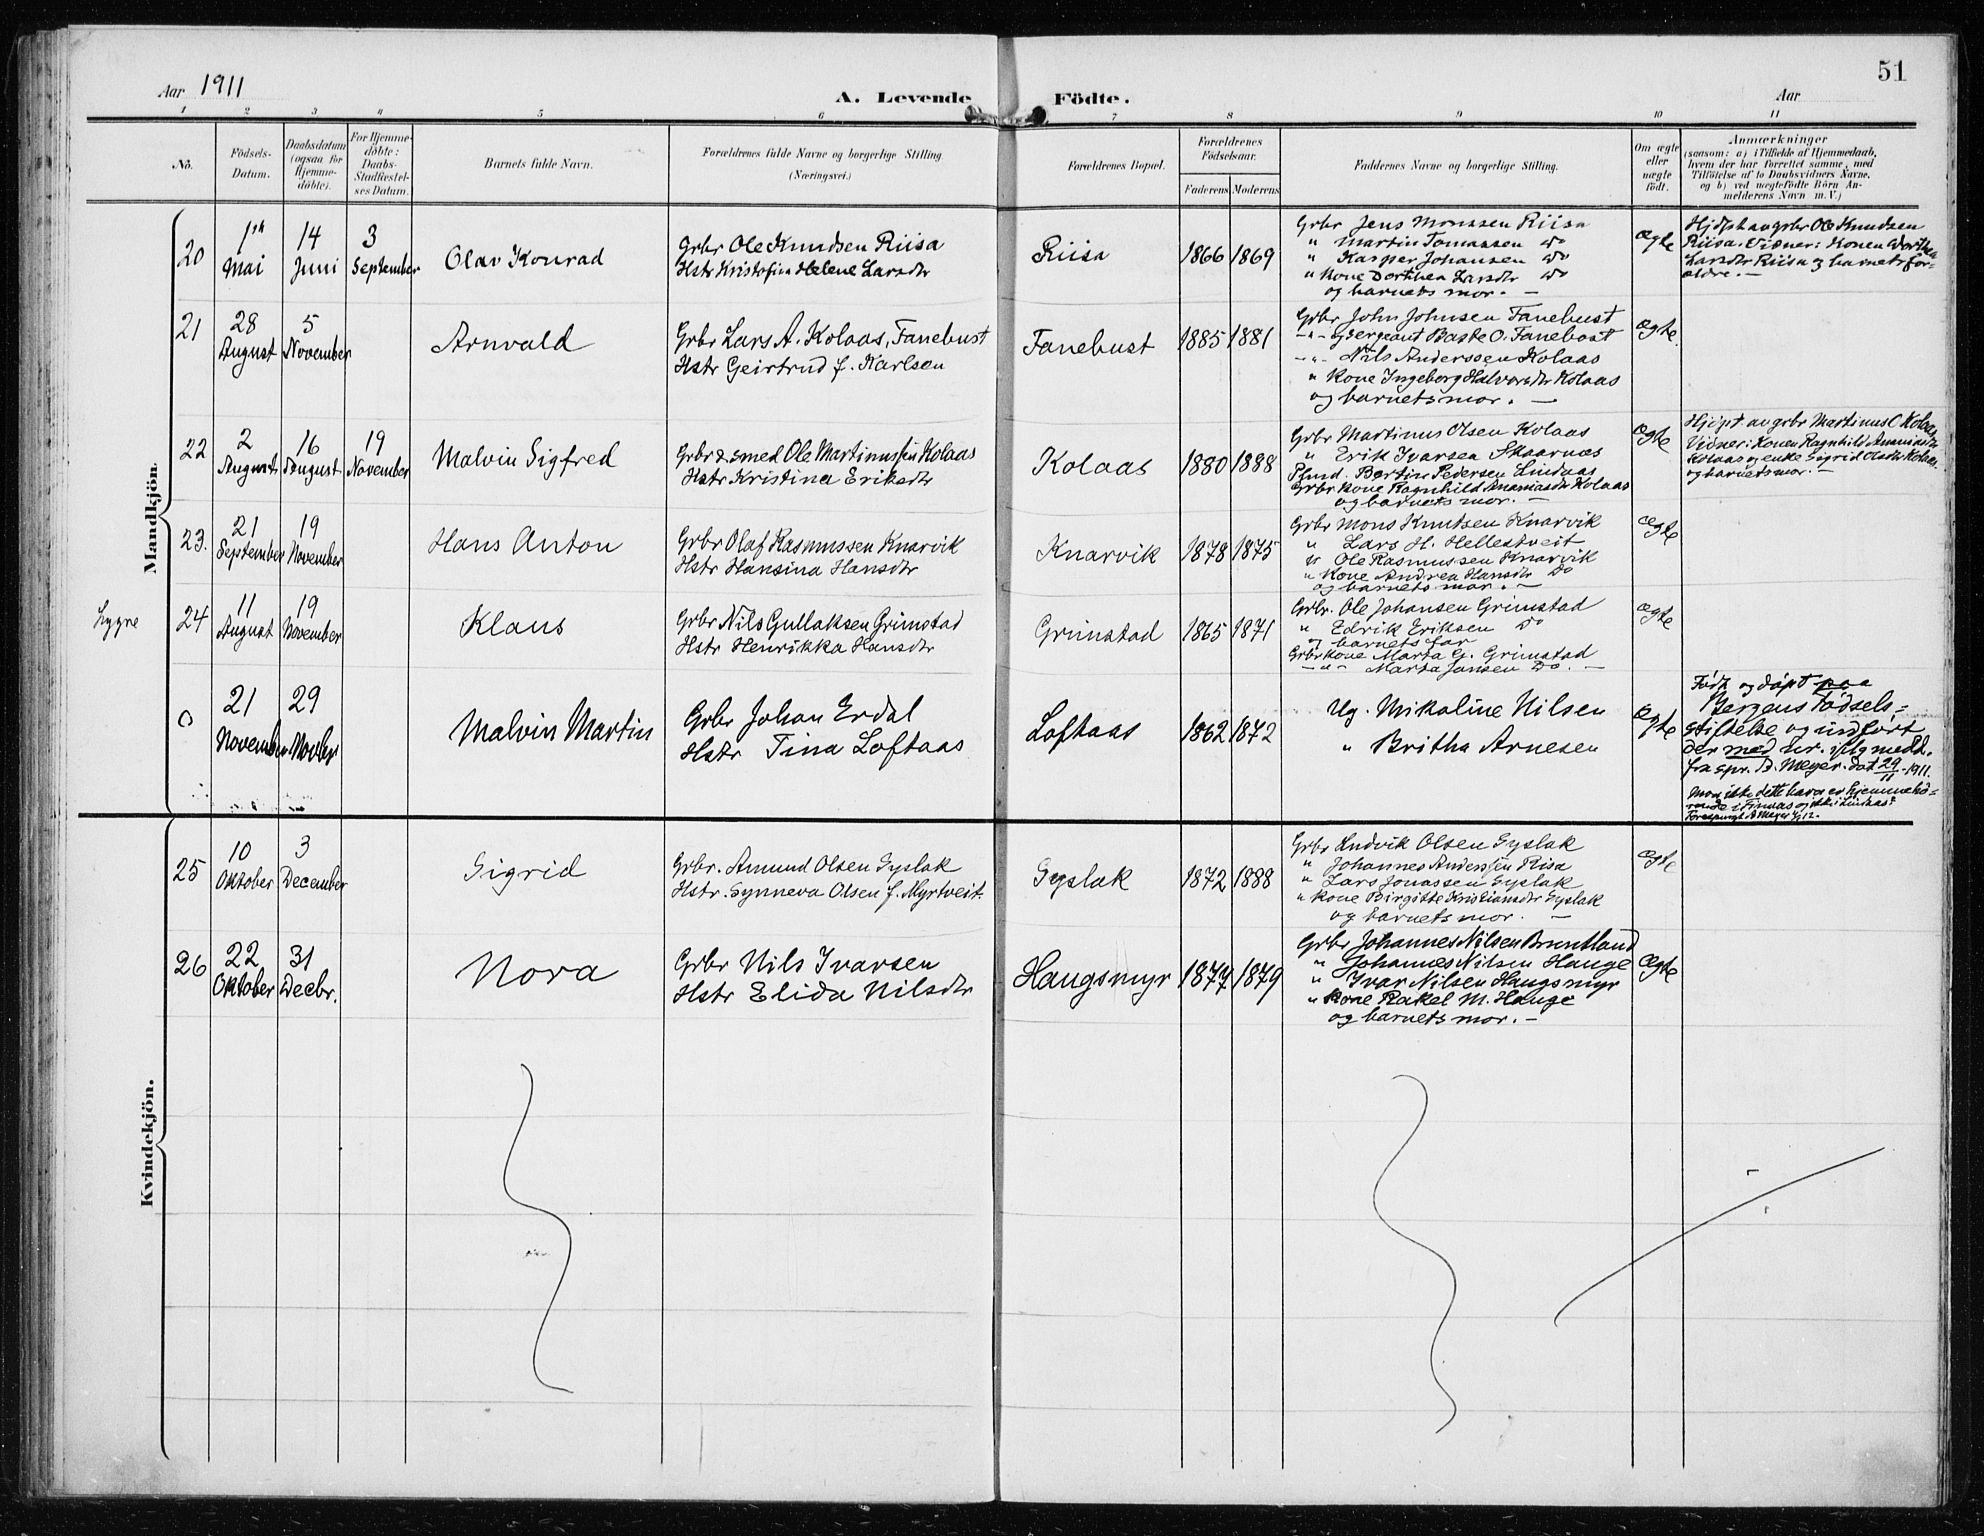 Aar 1911
A. Levende Födte.
51
Aar
1 2 3 4 5 6 7 8 9 10 11
Nö.
Födsels-Datum.
Daabsdatum (ogsaa for Hjemme-döbte).
For Hjemme-döbte: Daabs-Stadfæstel-ses Datum.
Barnets fulde Navn.
Forældrenes fulde Navne og borgerlige Stilling.
(Næringsvei.)
Forældrenes Bopæl.
Forældrenes Födselsaar.
Faderens Moderens
Faddernes Navne og borgerlige Stilling.
Om ægte eller uægte födt.
Anmærkninger
(saasom: a) i Tilfælde af Hjemmedaab,
hvem der har forrettet samme, med
Tilföielse af to Daabsvidners Navne,
og b) ved uægtefödte Börn An-
melderens Navn m. V.)
Mandkjön.
20
1ste Mai
14 Juni
3 September
Olav Konrad
Grbr Ole Knudsen Riisa
Hstr Kristofina Helene Larsdtr
Riisa
1866 1869
Grbr Jens Monssen Riisa
" Martin Tomassen Do
" Kasper Johansen Do
" Kone Dorthea Larsdtr Do
og barnets mor. —
Ægte
Hjdøpt av grbr Ole Knudsen
Riisa. Vidner: Konen Dorthea
Larsdtr Riisa og barnets for-
ældre. —
21
28 August
5 November
Arnvald
Grbr Lars A. Kolaas, Fanebust
Hstr Geirtrud f. Karlsen
Fanebust
1885 1881
Grbr John Johnsen Fanebust
-"- Sergeant Baste O. Fanebost
-"- Nils Anderssen Kolaas
" Kone Ingeborg Halvorsdtr Kolaas
og barnets mor. —
Ægte.
22
2 August
16 August
19 November
Malvin Sigfred
Grbr & smed Ole Martinussen Kolaas
Hstr Kristina Eriksdtr
Kolaas
1880 1888
Grbr Martinus Olsen Kolaas
" Erik Ivarsen Skaarnæs
Pfmd. Bertin Pedersen Lindaas
Grbr Kone Ragnhild Ananiasdtr Kolaas
og barnets mor. —
Ægte
Hjdøpt av grbr Martinus O Kolaas
Vidner: Konen Ragnhild Ananiasdtr
Kolaas og enke Sigrid Olsdtr Kolaas.
og barnets mor. —
23.
21 September
19 November
Hans Anton
Grbr Olaf Rasmussen Knarvik
Hstr Hansina Hansdtr
Knarvik
1878 1875
Grbr Mons Knutsen Knarvik
" Lars H. Hellestveit
" Ole Rasmussen Knarvik
" Kone Andrea Hansdtr Do
og barnets mor. —
Ægte
Lygre
24
11 August
19 November
Klaus
Grbr Nils Gullaksen Grimstad
Hstr Henrikka Hansdtr
Grimstad
1865 1871
Grbr. Ole Johansen Grimstad
" Edrik Eriksen Do
og barnets far
Grbr kone Marta G. Grimstad
-"- Marta Jansen Do. —
Ægte
0
21 November
29 Novbr
Malvin Martin
Grbr Johan Erdal
Hstr Tina Loftaas
Loftaas
1862 1872
Ug. Mikaline Nilsen
" Britha Arnesen
Ægte
Født og døpt paa
Bergens Fødsels-
stiftelse og indført
der med nr. iflg medd.
fra spr. B. Meyer. dat 29/11-1911.
Mor ikke dette barn er hjemmehø-
rende i Finnaas og ikke i Lindaas?
Forespurgt B Meyer 1/12.
Kvindekjön.
25
10 Oktober
3 December
Sigrid
Grbr. Amund Olsen Syslak
Hstr. Synneva Olsen f. Myrtveit.
Syslak
1872 1888
Grbr Ludvik Olsen Syslak
" Johannes Anderssen Risa
" Lars Jonassen Syslak
" Kone Birgitte Kristiansdtr Syslak
og barnets mor. —
Ægte
26
22 Oktober
31 Decbr.
Nora
Grbr Nils Ivarsen
Hstr Elida Nilsdtr
Haugsmyr
1877 1879
Grbr Johannes Nilsen Bruntland
" Johannes Nilsen Hauge
" Ivar Nilsen Haugsmyr
" Kone Rakel M. Hauge
og barnets mor. —
Ægte